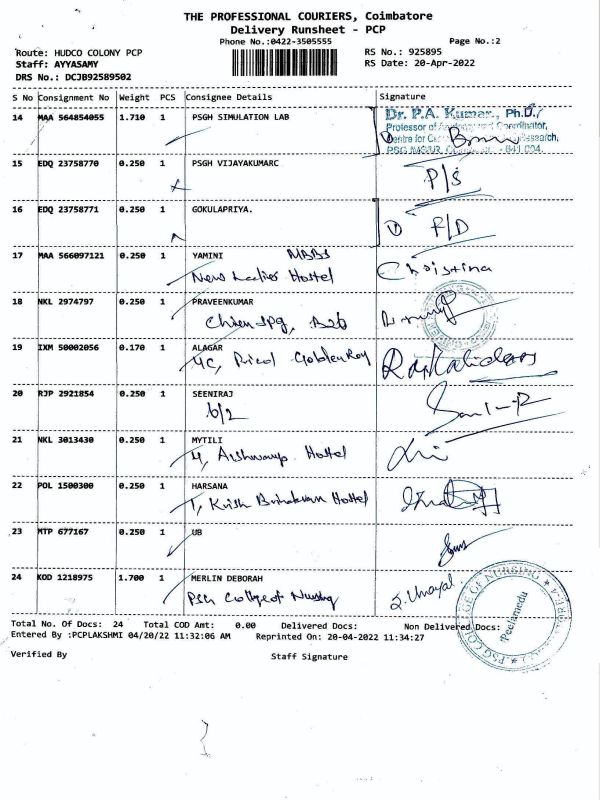 THE PROFESSIONAL COURIERS, Coimbatore
Delivery Runsheet - PCP
Phone No.:0422-3505555
Page No.:2
Route: HUDCO COLONY PCP
RS No.: 925895
Staff: AYYASAMY
RS Date: 20-Apr-2022
DRS No.: DCJB92589502
S No Consignment No Weight PCS Consignee Details Signature
14 MAA 564854055 1.710 1 PSGH SIMULATION LAB
Dr. P.A. Kumar., Ph.D./
15 EDQ 23758770 0.250 1 PSGH VIJAYAKUMARC P/S
16 EDQ 23758771 0.250 1 GOKULAPRIYA. F/D
17 MAA 566097121 0.250 1 YAMINI MBBS Christina
New Ladies Hostel
18 NKL 2974797 0.250 1 PRAVEENKUMAR
19 IXM 50002056 0.170 1 ALAGAR
4C,
20 RJP 2921854 0.250 1 SEENIRAJ
b/2
21 NKL 3013430 0.250 1 MYTILI
4, Aishwarya Hostel
22 POL 1500300 0.250 1 HARSANA
1, Hostel
23 MTP 677167 0.250 1 UB
24 KOD 1218975 1.700 1 MERLIN DEBORAH S. Unayal
PSG College of Nursing
PSG COLLEGE OF NURSING
Peelamedu
Total No. Of Docs: 24 Total COD Amt: 0.00 Delivered Docs: Non Delivered Docs:
Entered By :PCPLAKSHMI 04/20/22 11:32:06 AM Reprinted On: 20-04-2022 11:34:27
Verified By Staff Signature